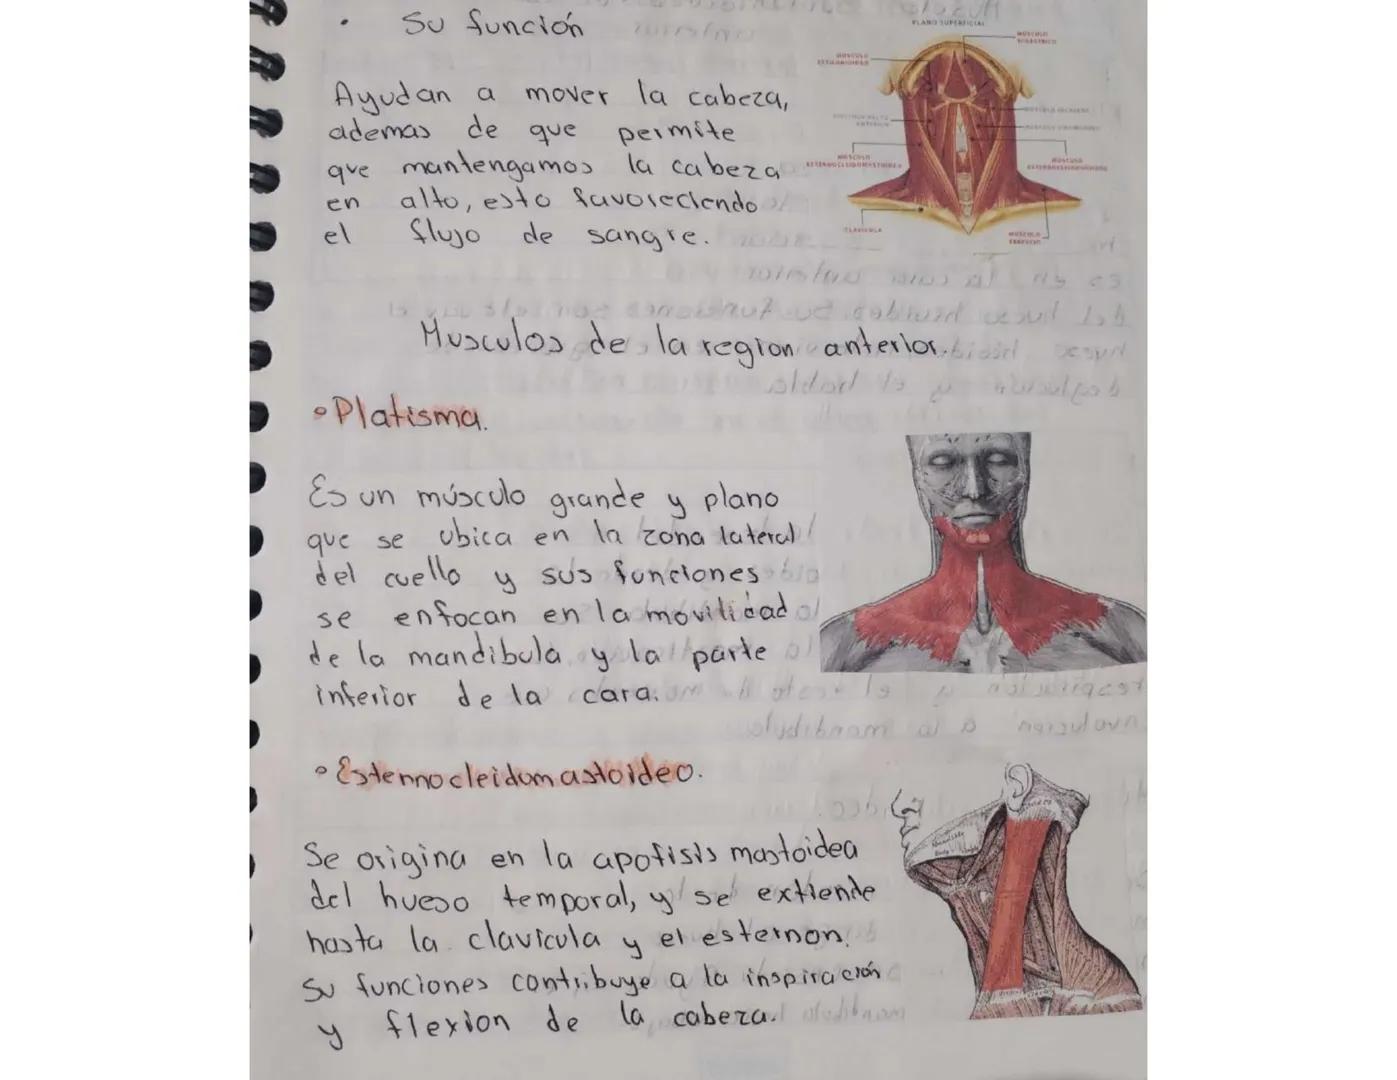 • Su función
Ayudan a mover la cabeza,
ademas de que permite
que mantengamos la cabeza
en alto, esto favoreciendo
el flujo de sangre.
PLANO SUPERFICIAL
MUSCULO
DIGASTRICO
MUSCULO
MUSCULO
ESTERNOCLEIDOMASTOIDEO
MUSCULO
ESTERNOCLEIDOMASTOIDEO
CLAVICULA
MUSCULO
Musculos de la region anterior.
• Platisma.
Es un músculo grande y plano
que se ubica en la zona lateral
del cuello y sus funciones
se enfocan en la movilidad
de la mandibula y la parte
inferior de la cara.
• Esternocleidomastoideo.
Se origina en la apofisis mastoidea
del hueso temporal, y se extiende
hasta la clavicula y el esternon.
Su funciones contribuye a la inspiración
y flexion de la cabeza.